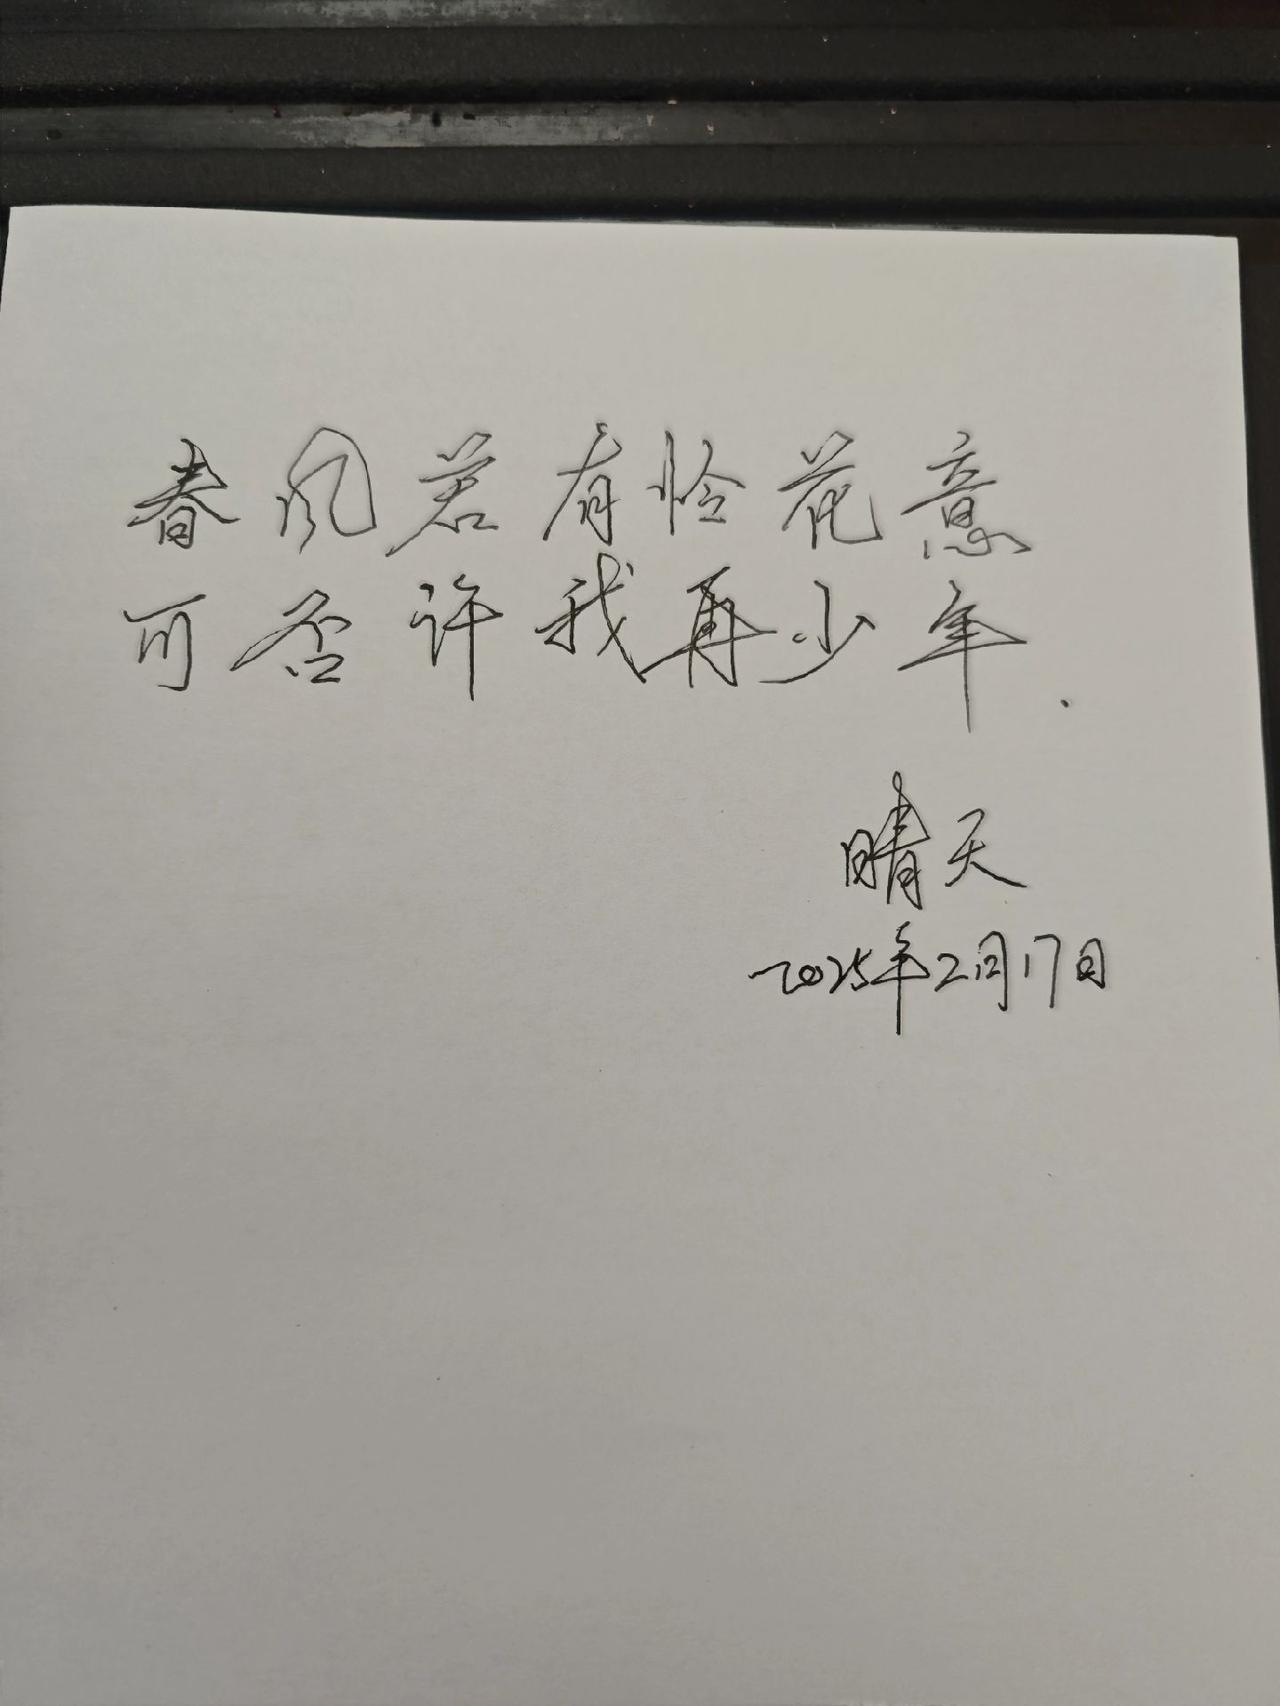 春风若有怜花意
可否许我再少年.
晴天
2025年2月17日